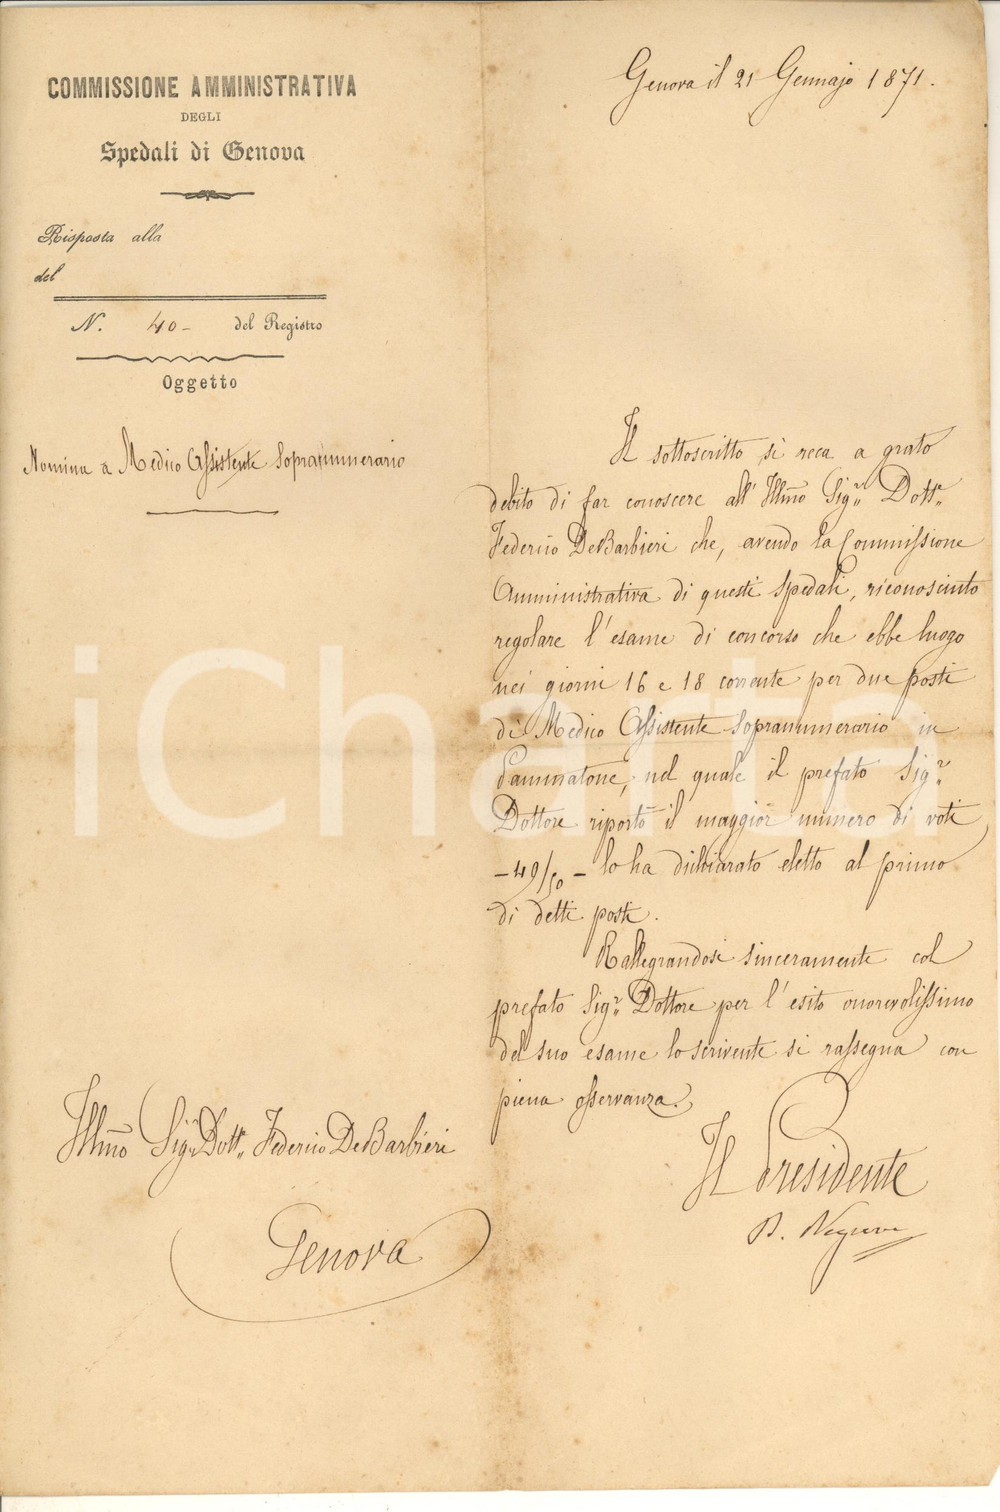 COMMISSIONE AMMINISTRATIVA
DEGLI
Spedali di Genova
Risposta alla
del
N. 40- del Registro
Oggetto
Nomina a Medico Assistente Soprannumerario
Genova il 21 Gennajo 1871.
Il sottoscritto si reca a grato
debito di far conoscere all' Illmo Sigr. Dottr.
Federico DeBarbieri che, avendo la Commissione
Amministrativa di questi Spedali, riconosciuto
regolare l'esame di concorso che ebbe luogo
nei giorni 16 e 18 corrente per due posti
di Medico Assistente Soprannumerario in
Pammatone, nel quale il prefato Sigr.
Dottore riportò il maggior numero di voti
- 49/50 - lo ha dichiarato eletto al primo
di detti posti.
Rallegrandosi sinceramente col
prefato Sigr. Dottore per l'esito onorevolissimo
del suo esame lo scrivente si rassegna con
piena osservanza.
Il Presidente
Illmo Sigr. Dottr. Federico DeBarbieri
Genova
iCharta